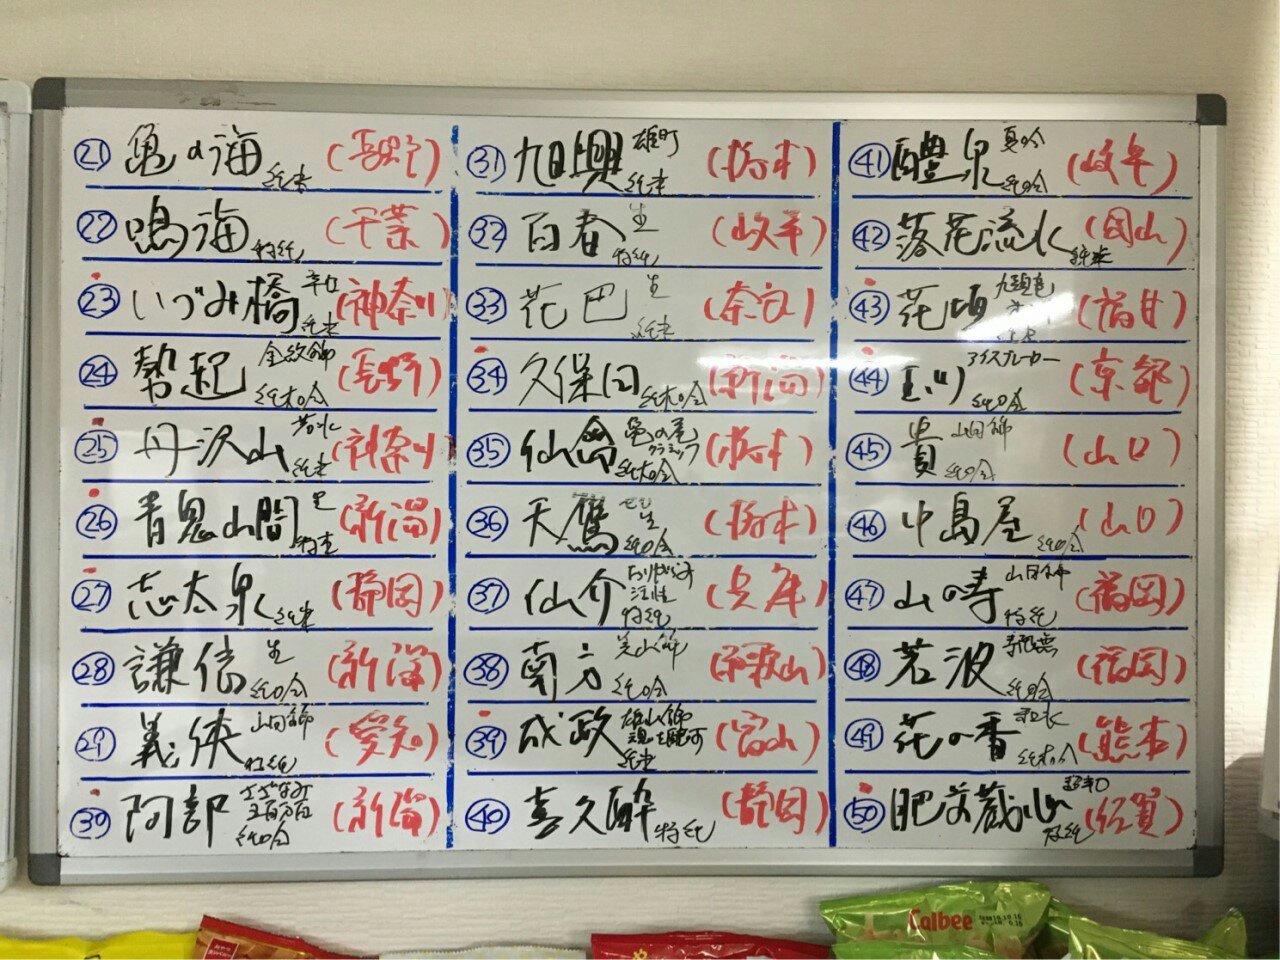 ㉑ 亀の海 純米 (長野)
㉒ 鳴海 特純 (千葉)
㉓ いづみ橋 辛口 純米 (神奈川)
㉔ 勢起 金紋錦 純大吟 (長野)
㉕ 丹沢山 若水 純米 (神奈川)
㉖ 青鬼山間 生 (新潟)
㉗ 志太泉 純米 (静岡)
㉘ 謙信 生 純吟 (新潟)
㉙ 義侠 山田錦 特純 (愛知)
㉚ 阿部 五百万石 純吟 (新潟)
㉛ 旭興 雄町 純米 (栃木)
㉜ 百春 生 特純 (岐阜)
㉝ 花巴 生 純米 (奈良)
㉞ 久保田 純大吟 (新潟)
㉟ 仙禽 亀の尾 クラシック 純大吟 (栃木)
㊱ 天鷹 生 純吟 (栃木)
㊲ 仙介 活性 特純 (兵庫)
㊳ 南方 美山錦 純吟 (和歌山)
㊴ 成政 雄山錦 純米 (富山)
㊵ 喜久酔 特純 (静岡)
㊶ 醴泉 夏吟 純吟 (岐阜)
㊷ 落花流水 純米 (岡山)
㊸ 花垣 九頭竜 純米 (福井)
㊹ 玉川 アイスブレーカー 純吟 (京都)
㊺ 貴 山田錦 純吟 (山口)
㊻ 中島屋 純吟 (山口)
㊼ 山の寿 山田錦 特純 (福岡)
㊽ 若波 寿限無 純吟 (福岡)
㊾ 花の香 和水 純大吟 (熊本)
㊿ 肥前蔵心 超辛口 特純 (佐賀)
Calbee